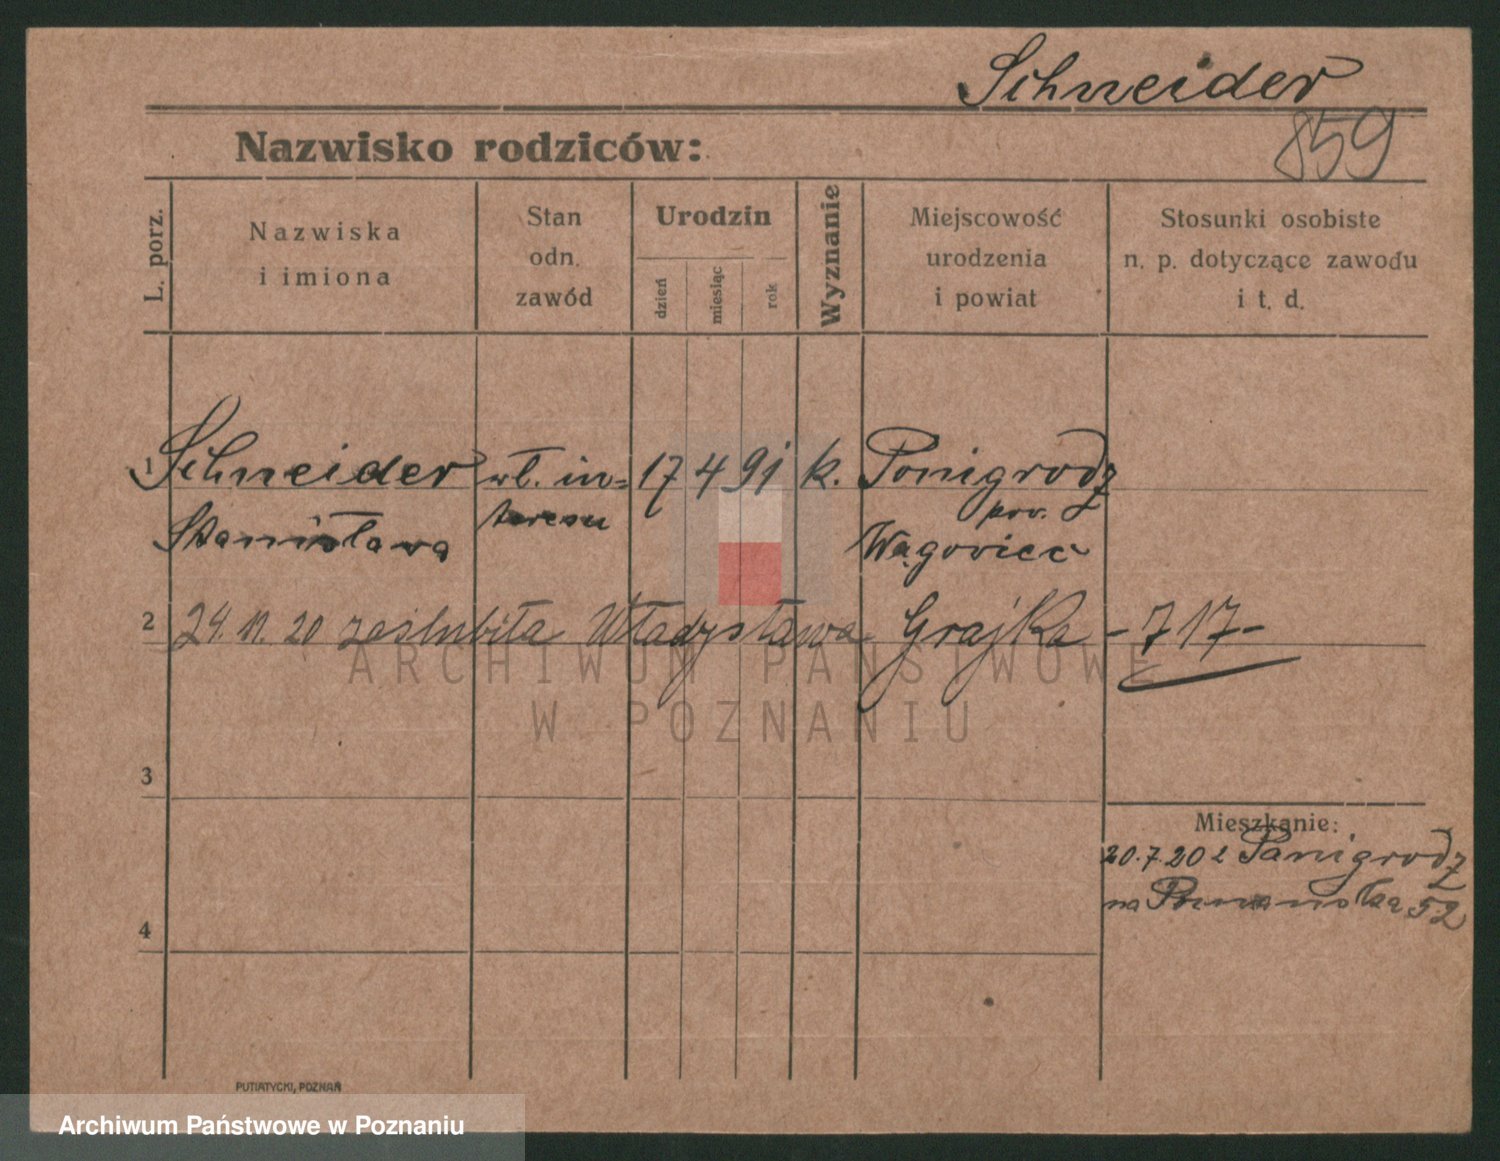 Schneider
859
Nazwisko rodziców:
L. porz.
Nazwiska
i imiona
Stan
odn.
zawód
Urodzin
dzień
miesiąc
rok
Wyznanie
Miejscowość
urodzenia
i powiat
Stosunki osobiste
n. p. dotyczące zawodu
i t. d.
1 Schneider wł. in= 17 4 91 k. Ponigrodz
teresu pow.
Stanisława Wągowiec
2 24. 11. 20 zaślubiła Władysława Grajka - 717-
ARCHIWUM PAŃSTWOWE
W POZNANIU
3
Mieszkanie:
20.7.20 z Panigrodz
na Poznańska 52
4
PUTIATYCKI, POZNAŃ
Archiwum Państwowe w Poznaniu